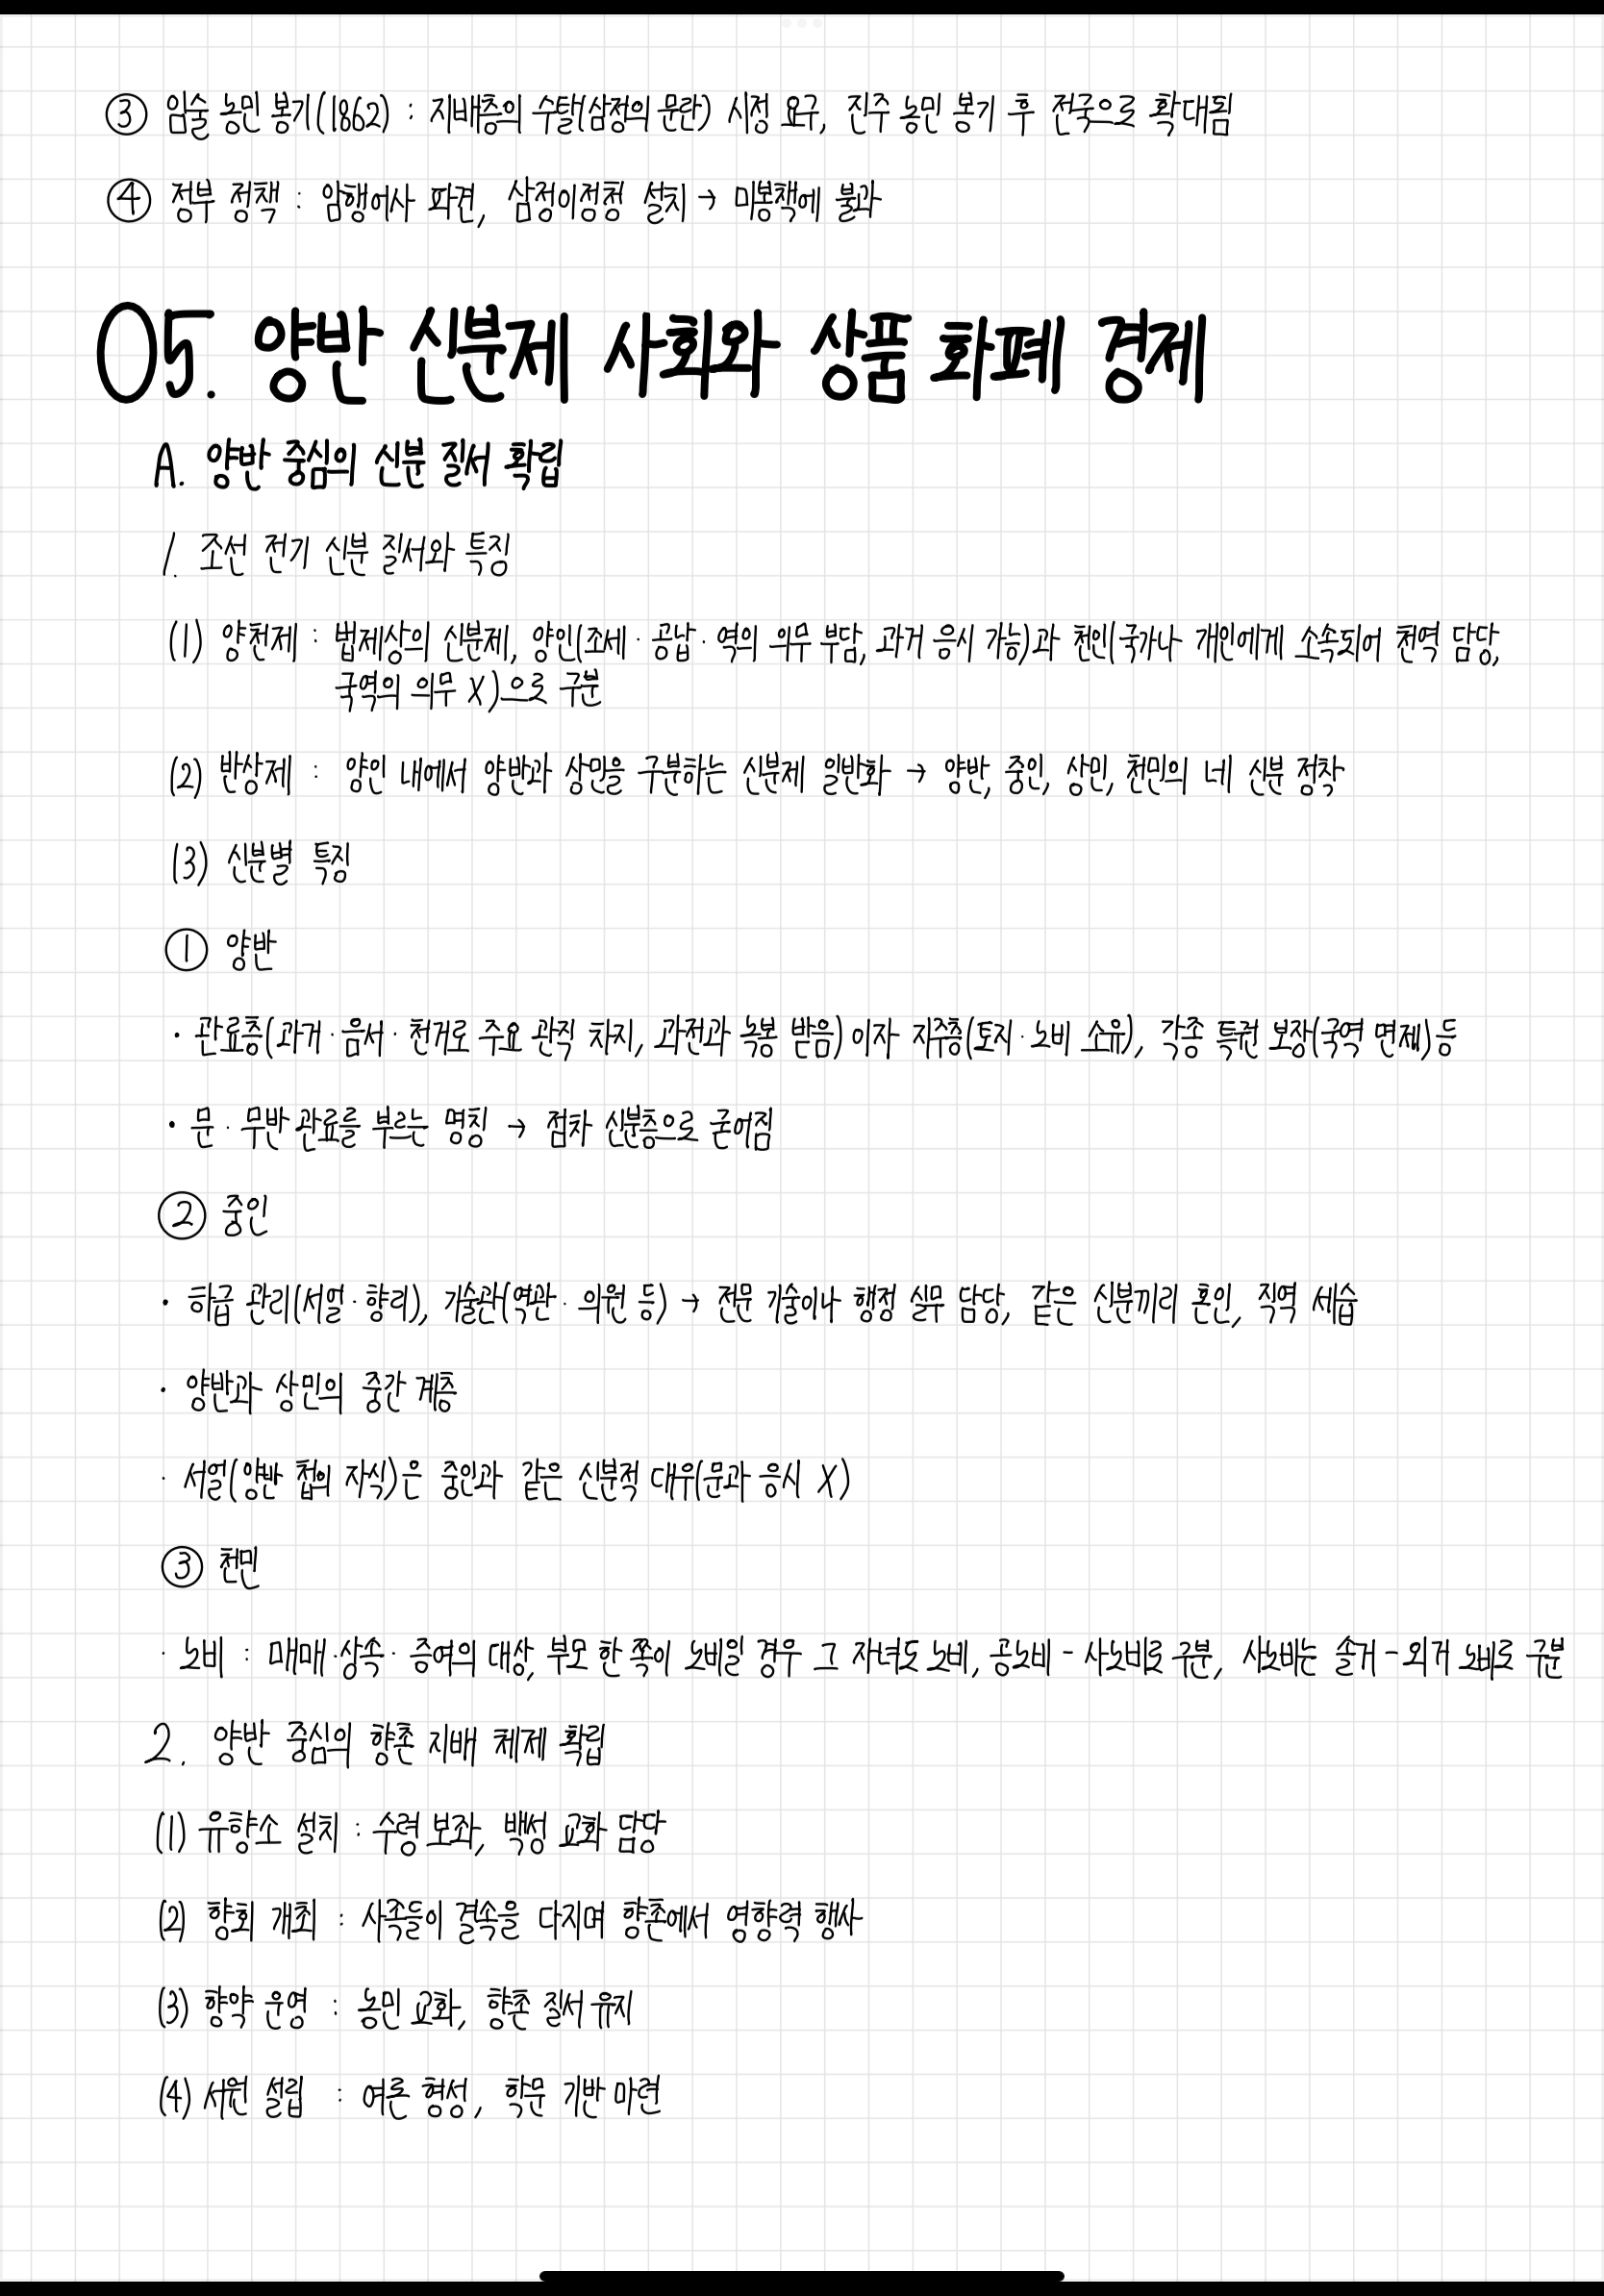 ③ 임술 농민 봉기(1862) : 지배층의 수탈(삼정의 문란) 시정 요구, 진주 농민 봉기 후 전국으로 확대됨
④ 정부 정책 : 암행어사 파견, 삼정이정청 설치 → 미봉책에 불과
05. 양반 신분제 사회와 상품 화폐 경제
A. 양반 중심의 신분 질서 확립
1. 조선 전기 신분 질서와 특징
(1) 양천제 : 법제상의 신분제, 양인(조세·공납·역의 의무 부담, 과거 응시 가능)과 천인(국가나 개인에게 소속되어 천역 담당,
국역의 의무 X)으로 구분
(2) 반상제 : 양인 내에서 양반과 상민을 구분하는 신분제 일반화 → 양반, 중인, 상민, 천민의 네 신분 정착
(3) 신분별 특징
① 양반
· 관료층(과거·음서·천거로 주요 관직 차지, 과전과 녹봉 받음)이자 지주층(토지·노비 소유), 각종 특권 보장(국역 면제)등
· 문·무반 관료를 부르는 명칭 → 점차 신분층으로 굳어짐
② 중인
· 하급 관리(서얼·향리), 기술관(역관·의원 등) → 전문 기술이나 행정 실무 담당, 같은 신분끼리 혼인, 직역 세습
· 양반과 상민의 중간 계층
· 서얼(양반 첩의 자식)은 중인과 같은 신분적 대우(문과 응시 X)
③ 천민
· 노비 : 매매·상속·증여의 대상, 부모 한 쪽이 노비일 경우 그 자녀도 노비, 공노비-사노비로 구분, 사노비는 솔거-외거 노비로 구분
2. 양반 중심의 향촌 지배 체제 확립
(1) 유향소 설치 : 수령 보좌, 백성 교화 담당
(2) 향회 개최 : 사족들이 결속을 다지며 향촌에서 영향력 행사
(3) 향약 운영 : 농민 교화, 향촌 질서 유지
(4) 서원 설립 : 여론 형성, 학문 기반 마련